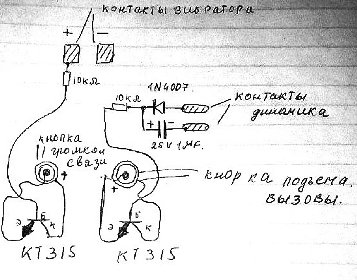 контакты вибратора
+ -
10кΩ
1N4007
10кΩ
контакты
динамика
+ -
25V 1MF.
кнопка
громкой
связи
+
+
кнорка подъема
вызовы.
э Б к
э Б к
КТ315 КТ315